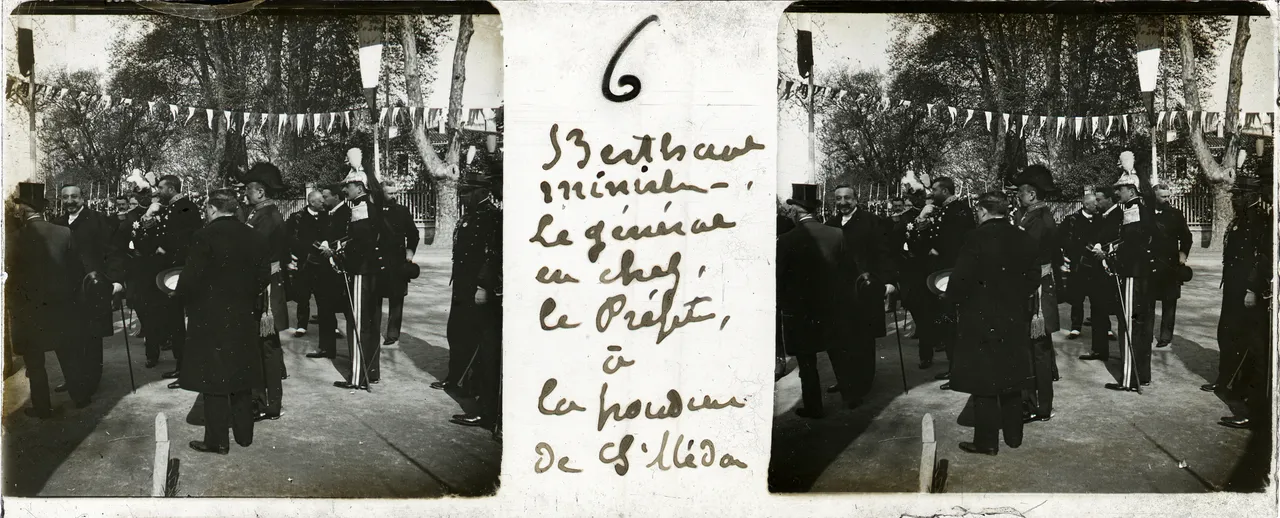 6
Bertheaut
ministre.
Le général
en chef,
le Préfet,
à
la poudrerie
de St Médar